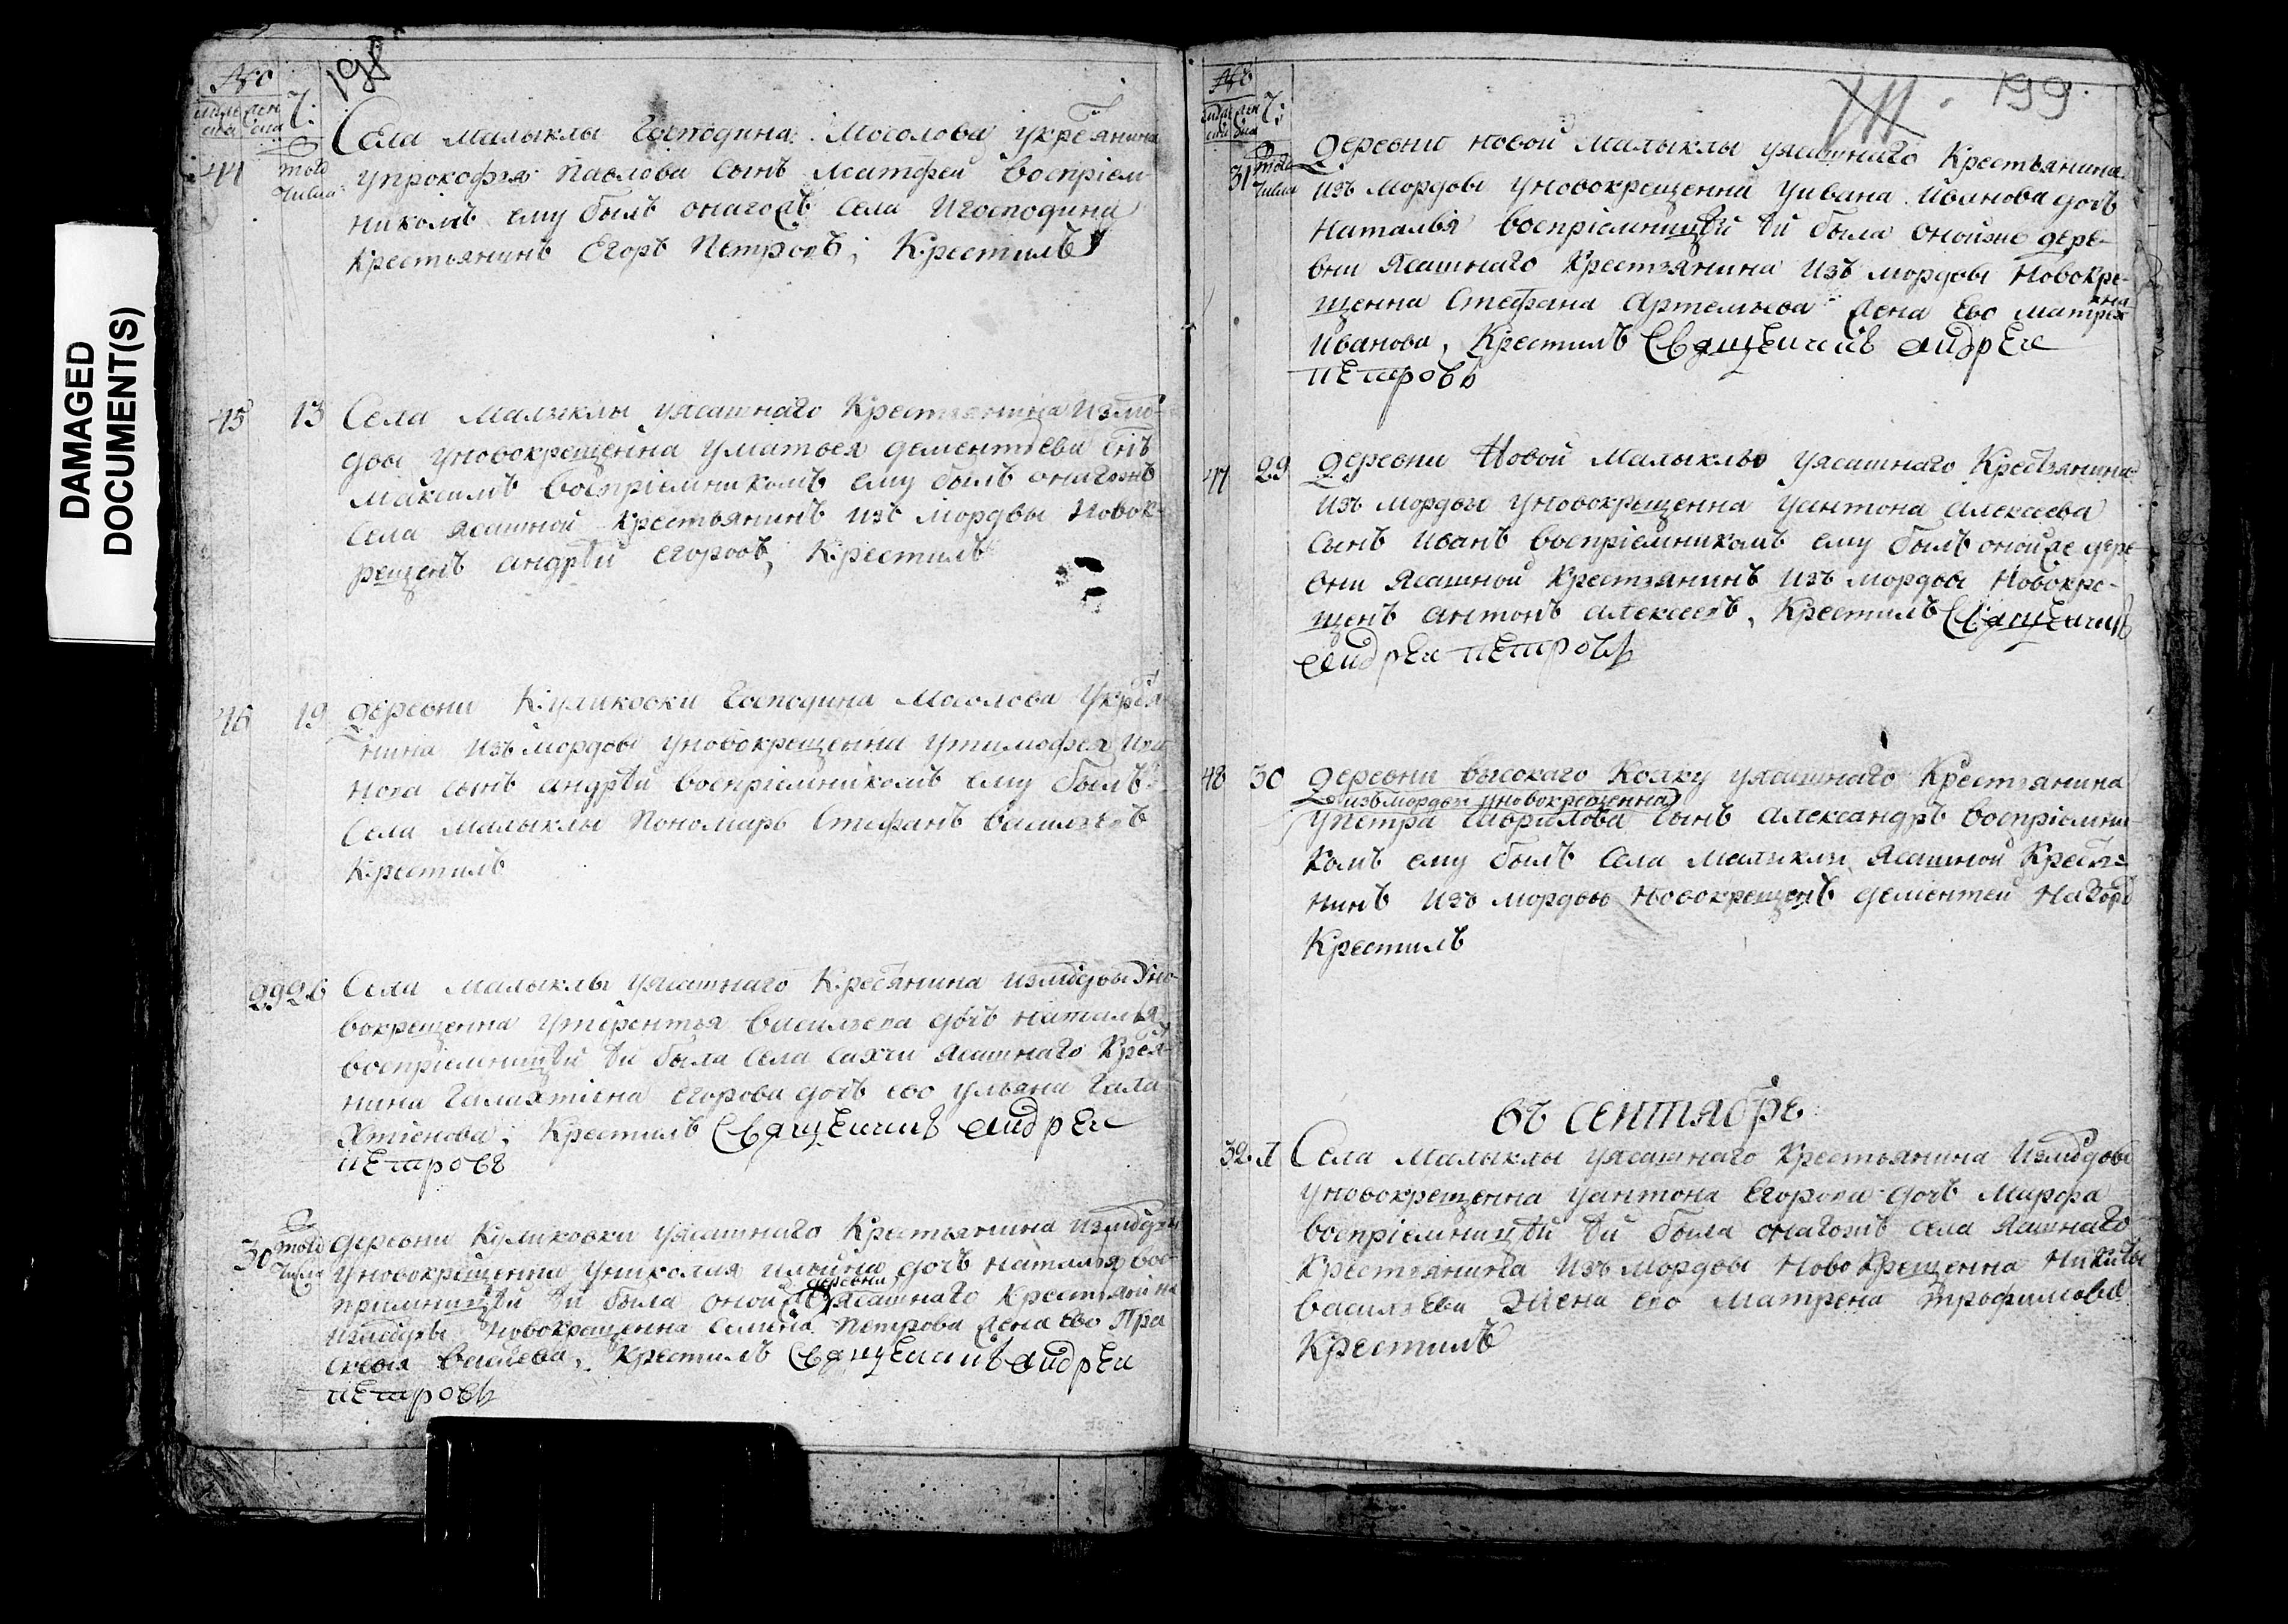 DAMAGED
DOCUMENT(S)
198
44
того
числа
Села малыклы господина Мосолова укрестьянина
упрокофья павлова сынъ матфей воспріем
никомъ ему былъ онагожъ села и господина
крестьянинъ Егоръ Петровъ, Крестилъ
45 13 Села малыклы уясашнаго Крестьянина измо
двы уновокрещенна уматвея дементіева снъ
максимъ воспріемникомъ ему былъ онагожъ
села ясашной крестьянинъ изъ мордвы новок
рещенъ андрѣй егоровъ, Крестилъ
46 19 деревни Куликовки господина Мосолова укрестья
нина изъ мордвы уновокрещенна утимофея
сынъ андрѣй воспріемникомъ ему былъ
села малыклы пономарь Стефанъ васильевъ
Крестилъ
29 26 Села малыклы уясашнаго Крестьянина измордвы уно
вокрещенна утерентья васильева дочь наталья
воспріемницей ѣй была села сахчи ясашнаго крестья
нина галахтіона егорова дочь ево ульяна гала
хтіонова, Крестилъ Священникъ андреи
петровъ
30 того
числа деревни Куликовки уясашнаго Крестьянина измордвы
уновокрещенна униколая ильина дочь наталья вос
пріемницей ѣй была оной же деревни ясашнаго крестьянина
измордвы новокрещенна семена петрова жена ево Пра
сковья васильева, Крестилъ Священникъ андреи
петровъ
199
31 того
числа
деревни новой малыклы уясашнаго Крестьянина
изъ мордвы уновокрещенна уивана иванова дочь
наталья воспріемницѣй ѣй была онойже дере
вни ясашнаго крестьянина изъ мордвы новокре
щенна стефана артемьева жена ево матрена
иванова, Крестилъ Священникъ андреи
петровъ
47 29 деревни новой малыклы уясашнаго Крестьянина
изъ мордвы уновокрещенна уантона алексеева
сынъ иванъ воспріемникомъ ему былъ онойже дере
вни ясашной крестьянинъ изъ мордвы новокре
щенъ антонъ алексеевъ, Крестилъ Священникъ
андреи петровъ
48 30 деревни высокаго Колку уясашнаго Крестьянина
изъ мордвы уновокрещенна
упетра гаврилова сынъ александръ воспріемни
комъ ему былъ села малыклы ясашной крестья
нинъ изъ мордвы новокрещенъ дементей
Крестилъ
въ сентябре
32 Села малыклы уясашнаго крестьянина измордвы
уновокрещенна уантона егорова дочь
воспріемницѣй ѣй была онагожъ села ясашнаго
крестьянина изъ мордвы новокрещенна никиты
васильева жена ево матрена трофимова
Крестилъ